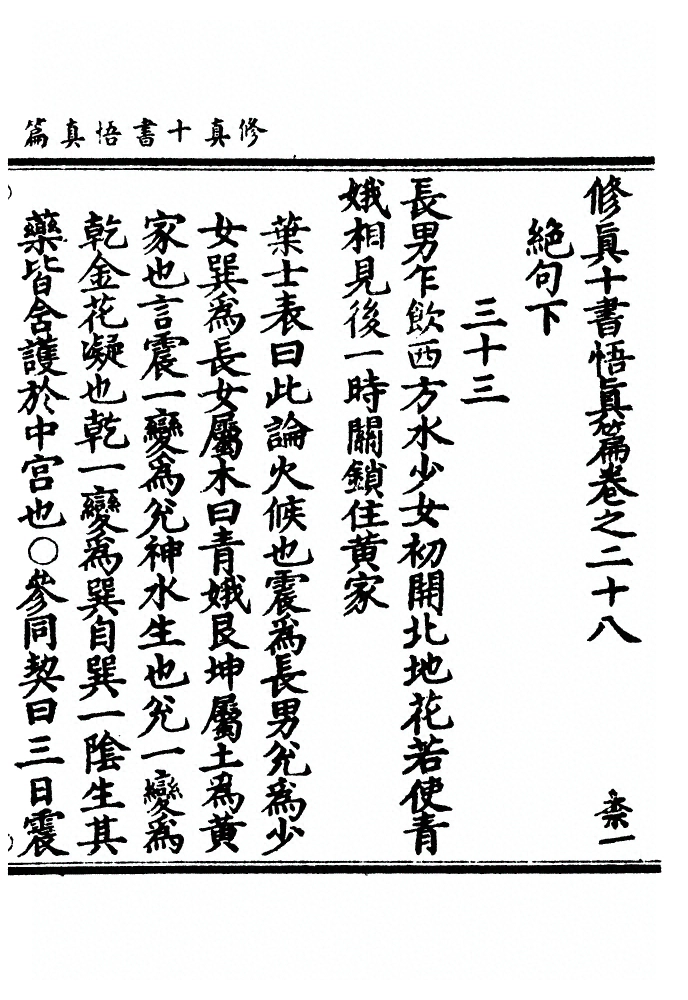 修真十書悟真篇
修真十書悟真篇卷之二十八 柰一
絕句下
三十三
長男乍飲西方水少女初開北地花若使青
娥相見後一時關鎖住黃家
葉士表曰此論火候也震為長男兊為少
女巽為長女屬木曰青娥艮坤屬土為黃
家也言震一變為兊神水生也兊一變為
乾金花凝也乾一變為巽自巽一陰生其
藥皆含護於中宮也○參同契曰三日震